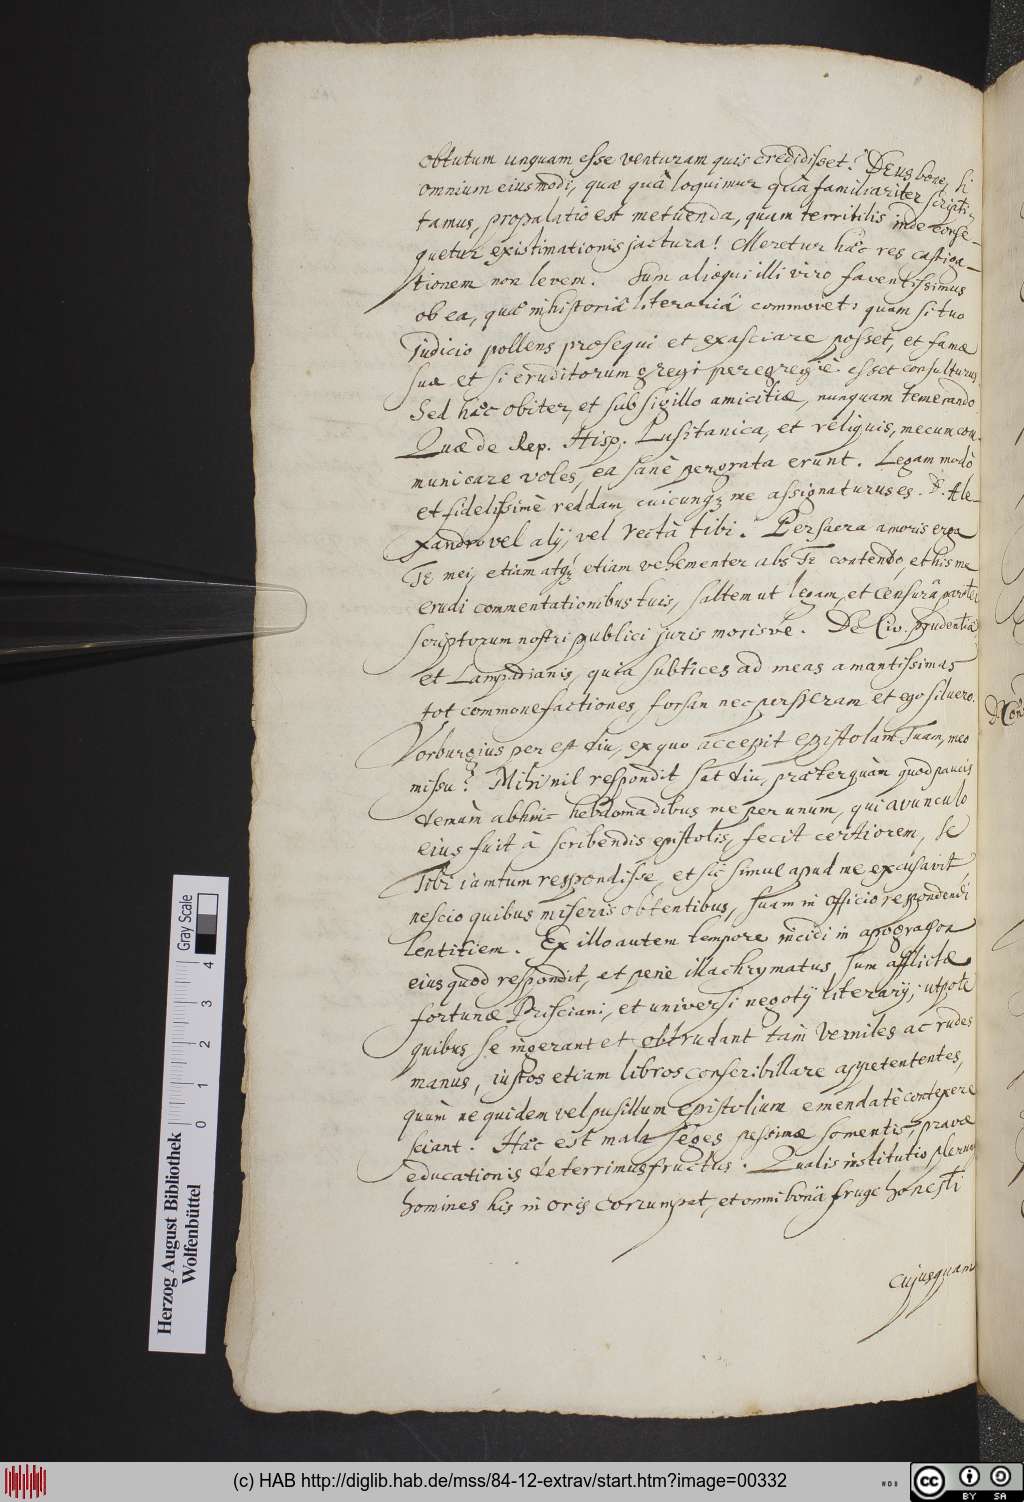 obtutum unquam esse venturam quis credidisset? DEus bone, si
omnium eiusmodi, quæ quâ loquimur quâ familiariter scripti-
tamus, propalatio est metuenda, quam terribilis inde conse-
quetur existimationis jactura! Meretur hæc res castiga-
tionem non levem. Sum alioqui illi viro faventissimus
ob ea, quæ in historiâ literariâ commovet; quam si tuo
judicio pollens prosequi et exasciare posset, et famæ
suæ et si eruditorum gregi peregregiè esset consulturus.
Sed hæc obiter, et sub sigillo amicitiæ, nunquam temerando
Quæ de Rep. Hisp. Lusitanica, et reliquis, mecum com-
municare voles, ea sanè pergrata erunt. Legam modò
et fidelissimè reddam, cuicunq; me assignaturus es. D. Ale-
xandro vel alij, vel rectà tibi. Per sacra amoris erga
TE mei, etiam atq; etiam vehementer abs TE contendo, et his me
erudi commentationibus tuis, saltem ut legam, et censurâ
scriptorum nostri publici juris morisve. De Civ. prudentia
et Lampadianis, quia subtices ad meas amantissimas
tot commonefactiones, forsan nec perperam et ego siluero.
Vorburgius per est diu, ex quo accepit epistolam Tuam, meo
missu? Mihi nil respondit sat diu, præterquàm quod paucis
demùm abhinc hebdomadibus me per unum, qui avunculo
eius fuit à scribendis epistolis, fecit certiorem, se
Tibi iamtum respondisse, et sic simul apud me excusavit
nescio quibus miseris obtentibus, suam in officio respondendi
lentitiem. Ex illo autem tempore incidi in apographon
eius quod respondit, et penè illachrymatus sum afflictæ
fortunæ Prisciani, et universi negotij literarij; utpote
quibus se ingerant et obtrudant tàm verniles ac rudes
manus, iustos etiam libros conscribillare appetententes,
quùm ne quidem vel pusillum epistolium emendatè contexere
sciant. Hæc est mala seges pessimæ sementis, pravæ
educationis deterrimus fructus. Qualis institutio plerumq
homines his in oris corrumpat, et omni bonâ fruge honesti
cujusquam
Herzog August Bibliothek
Wolfenbüttel
0 1 2 3 4
Gray Scale
(c) HAB http://diglib.hab.de/mss/84-12-extrav/start.htm?image=00332
cc BY SA